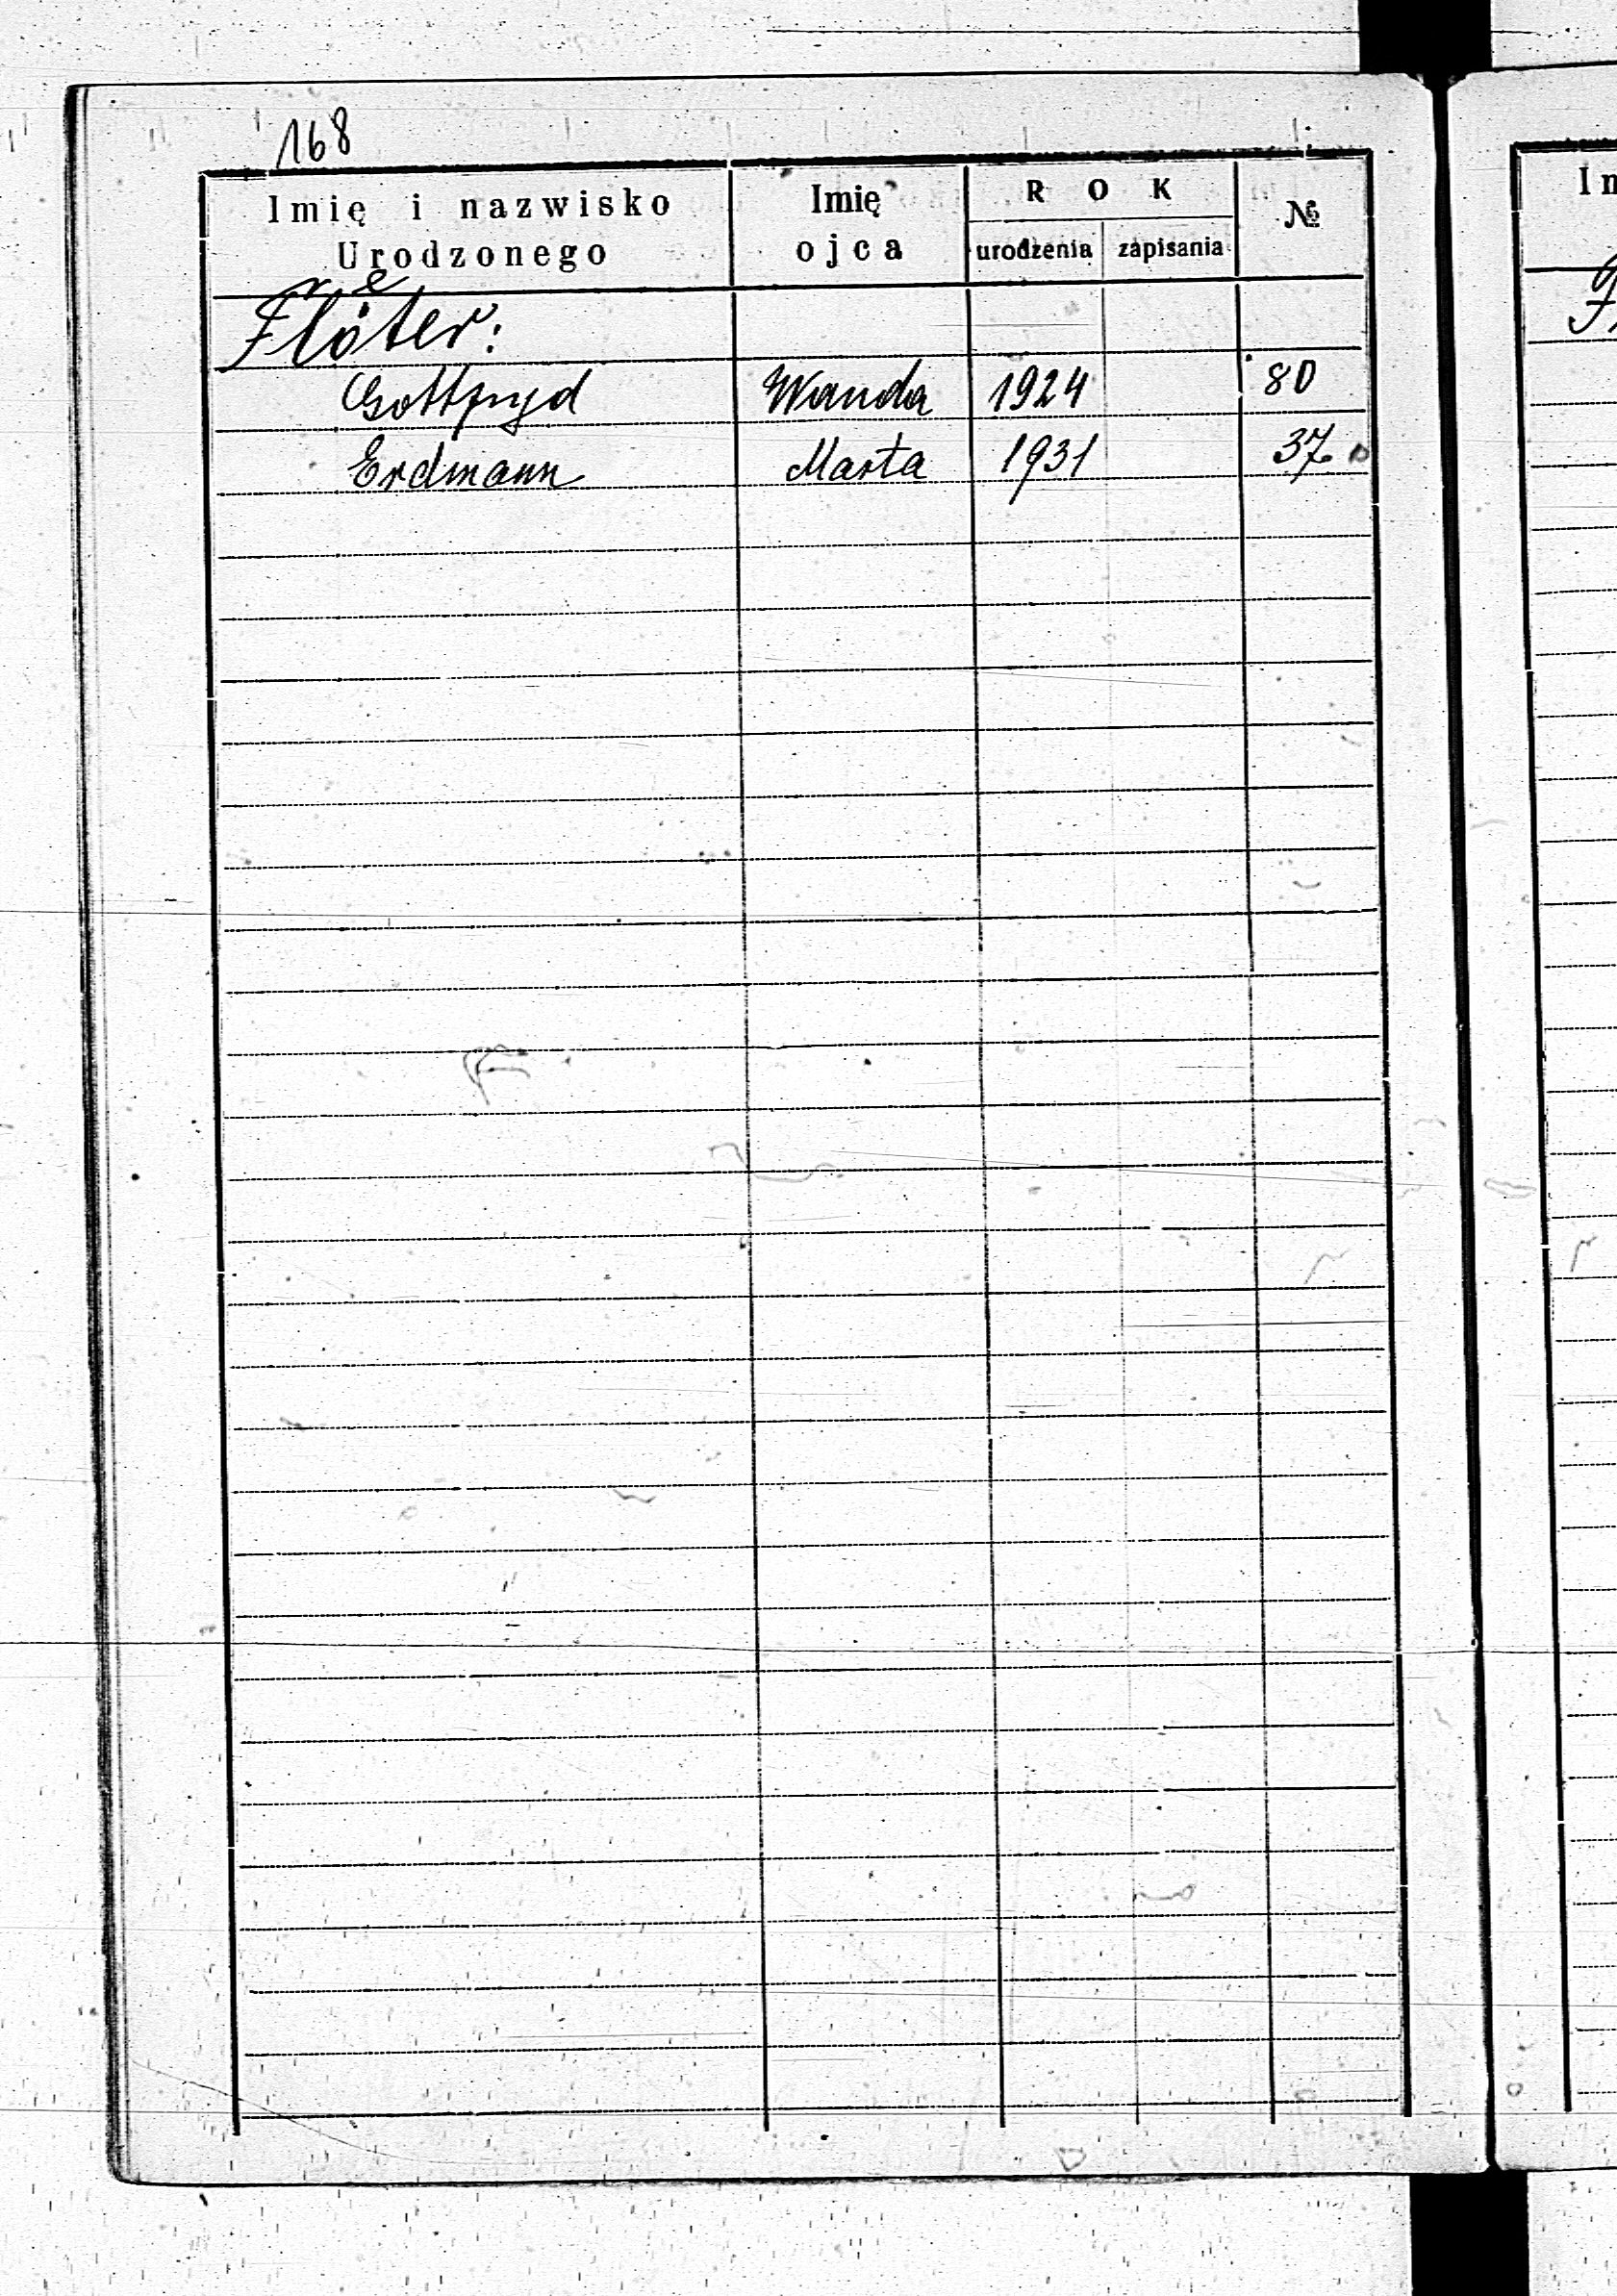 168
Imię i nazwisko Urodzonego Imię ojca ROK urodzenia zapisania №
Flöter:
Gottfryd Wanda 1924 80
Erdmann Marta 1931 37